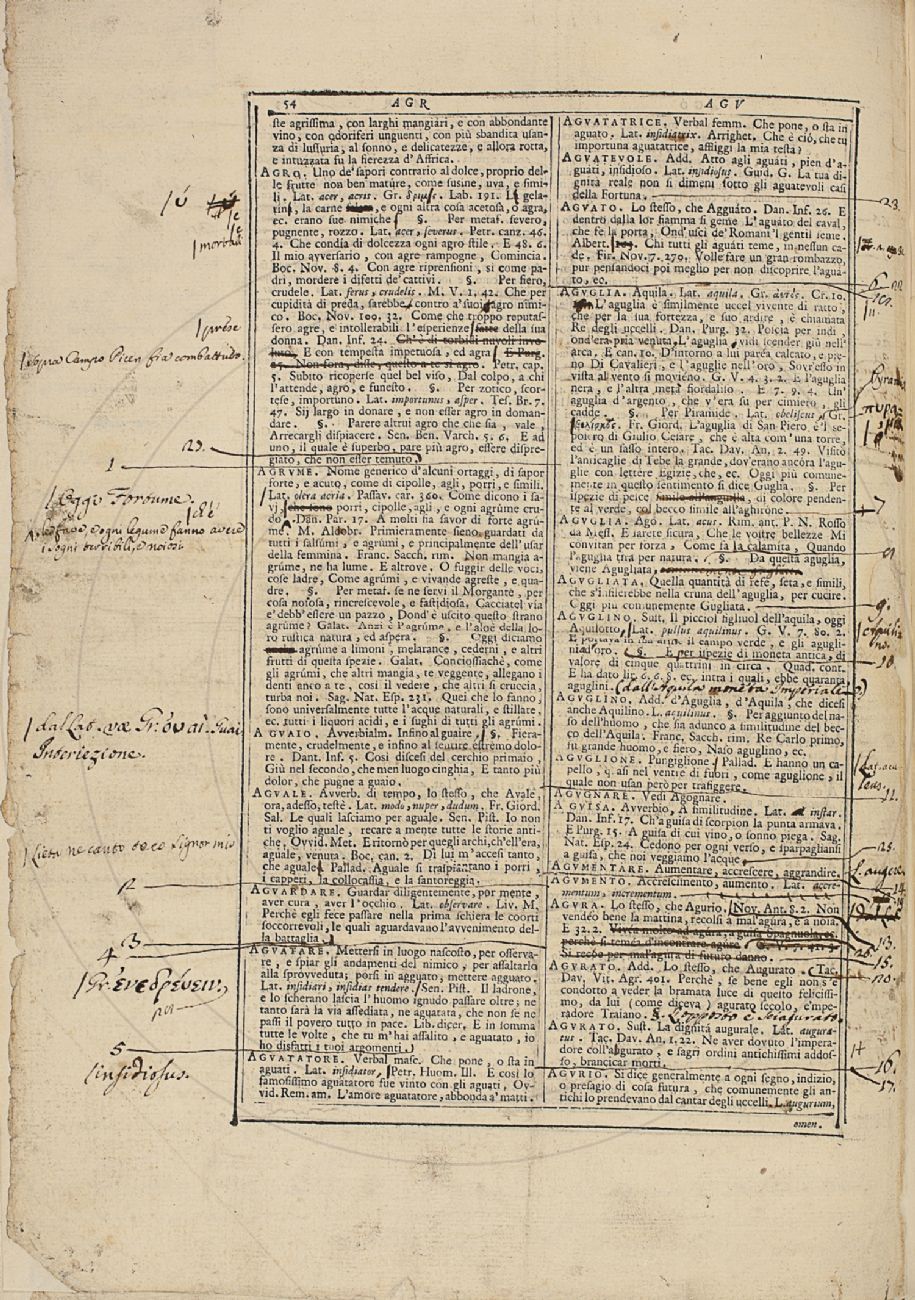 54 AGR AGV
ste agrissima, con larghi mangiari, e con abbondante
vino, con odoriferi unguenti, con più sbandita usan-
za di lussuria, al sonno, e delicatezze, e allora rotta,
e intuzzata fu la fierezza d'Affrica.
AGRO. Uno de' sapori contrario al dolce, proprio del-
le frutte non ben mature, come susine, uva, e simi-
li. Lat. acer, acris. Gr. Lab. 191. La gela-
tina, la carne, e ogni altra cosa acetosa, o agra,
ec. erano sue nimiche §. Per metaf. severo,
pugnente, rozzo. Lat. acer, severus. Petr. canz. 46.
4. Che condia di dolcezza ogni agro stile. E 48. 6.
Il mio avversario, con agre rampogne, Comincia.
Boc. Nov. 8. 4. Con agre riprensioni, sì come pa-
dri, mordere i difetti de' cattivi. §. Per fiero,
crudele. Lat. ferus, crudelis. M. V. 1. 42. Che per
cupidità di preda, sarebbe contro a' suoi agro nimi-
co. Boc. Nov. 100. 32. Come che troppo reputas-
sero agre, e intollerabili l'esperienze fatte della sua
donna. Dan. Inf. 24. Ch'è di torbidi nuvoli invo-
luto, E con tempesta impetuosa, ed agra E Purg.
25. Non fora, disse, questo a te sì agro. Petr. cap.
5. Subito ricoperse quel bel viso, Dal colpo, a chi
l'attende, agro, e funesto. §. Per zotico, scor-
tese, importuno. Lat. importunus, asper. Tes. Br. 7.
47. Sij largo in donare, e non esser agro in doman-
dare. §. Parere altrui agro che che sia, vale,
Arrecargli dispiacere. Sen. Ben. Varch. 5. 6. E ad
uno, il quale è superbo, pare più agro, essere dispre-
giato, che non esser temuto.
AGRUME. Nome generico d'alcuni ortaggi, di sapor
forte, e acuto, come di cipolle, agli, porri, e simili.
Lat. olera acria. Passav. car. 360. Come dicono i sa-
vj che sono porri, cipolle, agli, e ogni agrume cru-
do. Dan. Par. 17. A molti ha savor di forte agru-
me. M. Aldobr. Primieramente sieno guardati da
tutti i salsumi, e agrumi, e principalmente dell'usar
della femmina. Franc. Sacch. rim. Non mangia a-
grúme, ne ha lume. E altrove. O fuggir delle voci,
cose ladre, Come agrúmi, e vivande agreste, e qua-
dre. §. Per metaf. se ne servì il Morgante, per
cosa nojosa, rincrescevole, e fastidiosa. Cacciatel via
e' debb'essere un pazzo, Dond'è uscito questo strano
agrúme? Galat. Anzi è l'agrúme, e l'aloè della lo-
ro rustica natura, ed aspera. §. Oggi diciamo
agrúme a limoni, melarance, cederni, e altri
frutti di questa spezie. Galat. Conciossiachè, come
gli agrúmi, che altri mangia, te veggente, allegano i
denti anco a te, così il vedere, che altri si cruccia,
turba noi. Sag. Nat. Esp. 231. Quei che lo fanno,
sono universalmente tutte l'acque naturali, e stillate,
ec. tutti i liquori acidi, e i sughi di tutti gli agrúmi.
AGUAIO. Avverbialm. Infino al guaire, §. Fiera-
mente, crudelmente, e infino al sentire estremo dolo-
re. Dant. Inf. 5. Così discesi del cerchio primaio,
Giù nel secondo, che men luogo cinghia, E tanto più
dolor, che pugne a guaio.
AGUALE. Avverb. di tempo, lo stesso, che Avale,
ora, adesso, testè. Lat. modo, nuper, dudum. Fr. Giord.
Sal. Le quali lasciamo per aguale. Sen. Pist. Io non
ti voglio aguale, recare a mente tutte le storie anti-
che, Ovvid. Met. E ritornò per quegli archi, ch'ell'era,
aguale, venuta. Boc. can. 2. Di lui m'accesi tanto,
che aguale Pallad. Aguale si traspiantano i porri,
i capperi, la collocassia, e la santoreggia.
AGUARDARE. Guardar diligentemente, por mente,
aver cura, aver l'occhio. Lat. observare. Liv. M.
Perchè egli fece passare nella prima schiera le coorti
soccorrevoli, le quali aguardavano l'avvenimento del-
la battaglia.
AGUATARE. Mettersi in luogo nascosto, per osserva-
re, e spiar gli andamenti del nimico, per assaltarlo
alla sprovveduta; porsi in agguato; mettere agguato.
Lat. insidiari, insidias tendere. Sen. Pist. Il ladrone,
e lo scherano lascia l'huomo ignudo passare oltre; ne
tanto sarà la via assediata, ne aguatata, che non se ne
passi il povero tutto in pace. Lib. dicer. E in somma
tutte le volte, che tu m'hai assalito, e aguatato, io
ho disfatti i tuoi argomenti.
AGUATATORE. Verbal masc. Che pone, o sta in
aguati. Lat. insidiator. Petr. Huom. Ill. E così lo
famosissimo aguatatore fue vinto con gli aguati, Ov-
vid. Rem. am. L'amore aguatatore, abbonda a' matti.
AGUATATRICE. Verbal femm. Che pone, o sta in
aguato. Lat. insidiatrix. Arrighet. Che è ciò, che tu
importuna aguatatrice, affliggi la mia testa?
AGUATEVOLE. Add. Atto agli aguáti, pien d'a-
guáti, insidioso. Lat. insidiosus. Guid. G. La tua di-
gnità reale non si dimeni sotto gli aguatevoli casi
della Fortuna.
AGUATO. Lo stesso, che Agguáto. Dan. Inf. 26. E
dentro dalla lor fiamma si geme L'aguato del caval,
che fe la porta, Ond'uscì de' Romani 'l gentil seme.
Albert. Chi tutti gli aguáti teme, in nessun ca-
de. Fir. Nov. 7. 270. Volle fare un gran rombazzo,
pur pensandoci poi meglio per non discoprire l'agua-
to, ec.
AGUGLIA. Aquila. Lat. aquila. Gr. Cr. 10.
L'aguglia è similmente uccel vivente di ratto,
che per la sua fortezza, e suo ardire, è chiamata
Re degli uccelli. Dan. Purg. 32. Poscia per indi,
ond'era pria venuta, L'aguglia vidi scender giù nell'
arca. E can. 10. D'intorno a lui parea calcato, e pie-
no Di Cavalieri, e l'aguglie nell'oro, Sovr'esso in
vista al vento si moviéno. G. V. 4. 3. 2. E l'aguglia
nera, e l'altra metà fiordaliso. E 7. 9. 4. Un'
aguglia d'argento, che v'era su per cimiero, gli
cadde. §. Per Piramide. Lat. obeliscus, Gr.
Fr. Giord. L'aguglia di San Piero è 'l se-
polcro di Giulio Cesare, che è alta com'una torre,
ed è un sasso intero. Tac. Dav. An. 2. 49. Visitò
l'anticaglie di Tebe la grande, dov'erano ancóra l'agu-
glie con lettere Egizie, che, ec. Oggi più comune-
mente in questo sentimento si dice Guglia. §. Per
ispezie di pesce simile all'anguilla, di colore penden-
te al verde, col becco simile all'aghirone.
AGUGLIA. Ago. Lat. acus. Rim. ant. P. N. Rosso
da Mess. E sarete sicura, Che le vostre bellezze Mi
convitan per forza. Come fa la calamita, Quando
l'aguglia tira per natura. §. Da questa aguglia,
viene Agugliata,
AGUGLIATA. Quella quantità di refe, seta, e simili,
che s'infilerebbe nella cruna dell'aguglia, per cucire.
Oggi più comunemente Gugliata.
AGUGLINO. Sust. Il picciol figliuol dell'aquila, oggi
Aquilotto, Lat. pullus aquilinus. G. V. 7. 80. 2.
il campo verde, e gli agugli-
ni d'oro. §. E per ispezie di moneta antica, di
valore di cinque quattrini in circa. Quad. cont.
E ha dato lit. 6. 6. §. ec. intra i quali, ebbe quaranta
aguglini (dall'Aquila moneta Imperiale)
AGUGLINO. Add. d'Aguglia, d'Aquila, che dicesi
anche Aquilino. L. aquilinus. §. Per aggiunto del na-
so dell'huomo, che sia adunco a similitudine del bec-
co dell'Aquila. Franc. Sacch. rim. Re Carlo primo,
fu grande huomo, e fiero, Naso aguglino, ec.
AGUGLIONE. Pungiglione Pallad. E hanno un ca-
pello, quasi nel ventre di fuori, come aguglione, il
quale non usan però per trafiggere.
AGUGNARE. Vedi Agognare.
A GUISA. Avverbio, A similitudine. Lat. instar.
Dan. Inf. 17. Ch'a guisa di scorpion la punta armava.
E Purg. 15. A guisa di cui vino, o sonno piega. Sag.
Nat. Esp. 24. Cedono per ogni verso, e sparpagliansi
a guisa, che noi veggiamo l'acque
AGUMENTARE. Aumentare, accrescere, aggrandire.
AGUMENTO. Accrescimento, aumento. Lat. accre-
mentum, incrementum.
AGURA. Lo stesso, che Agurio. Nov. Ant. 8. 2. Non
vendéo bene la mattina, recolsi a mal'agúra, e a noia.
E 32. 2. Vivéa molto ad agúra, a guisa Spagnuola, ec.
perchè si teméa d'incontrare agúre G. V. 42. 4
Si recòe per mal'agura di futuro danno.
AGURATO. Add. Lo stesso, che Augurato. Tac.
Dav. Vit. Agr. 401. Perchè, se bene egli non s'è
condotto a veder la bramata luce di questo felicissi-
mo, da lui (come diceva) agurato secolo, e 'mpe-
radore Traiano. §. L'opposto è Sciagurato.
AGURATO. Sust. La dignità augurale. Lat. augura-
tus. Tac. Dav. An. 1. 22. Ne aver dovuto l'impera-
dore coll'agurato, e sagri ordini antichissimi addos-
so, brancicar morti.
AGURIO. Si dice generalmente a ogni segno, indizio,
o presagio di cosa futura, che comunemente gli an-
tichi lo prendevano dal cantar degli uccelli. L. augurium,
omen.
morbida
prese
sopra Campo Picen fia combattuto.
23.
1
Leggi Fortume.
i sogni orribili, e noiosi
dal Lat. væ Gr. ὀυαί. Guai
Interiezione.
lieto ne canto
2
3
4
Gr. ἐνεδρέυειν.
5
insidiosus.
7
9.
10.
11.
25.
14.
13.
15.
16.
17.